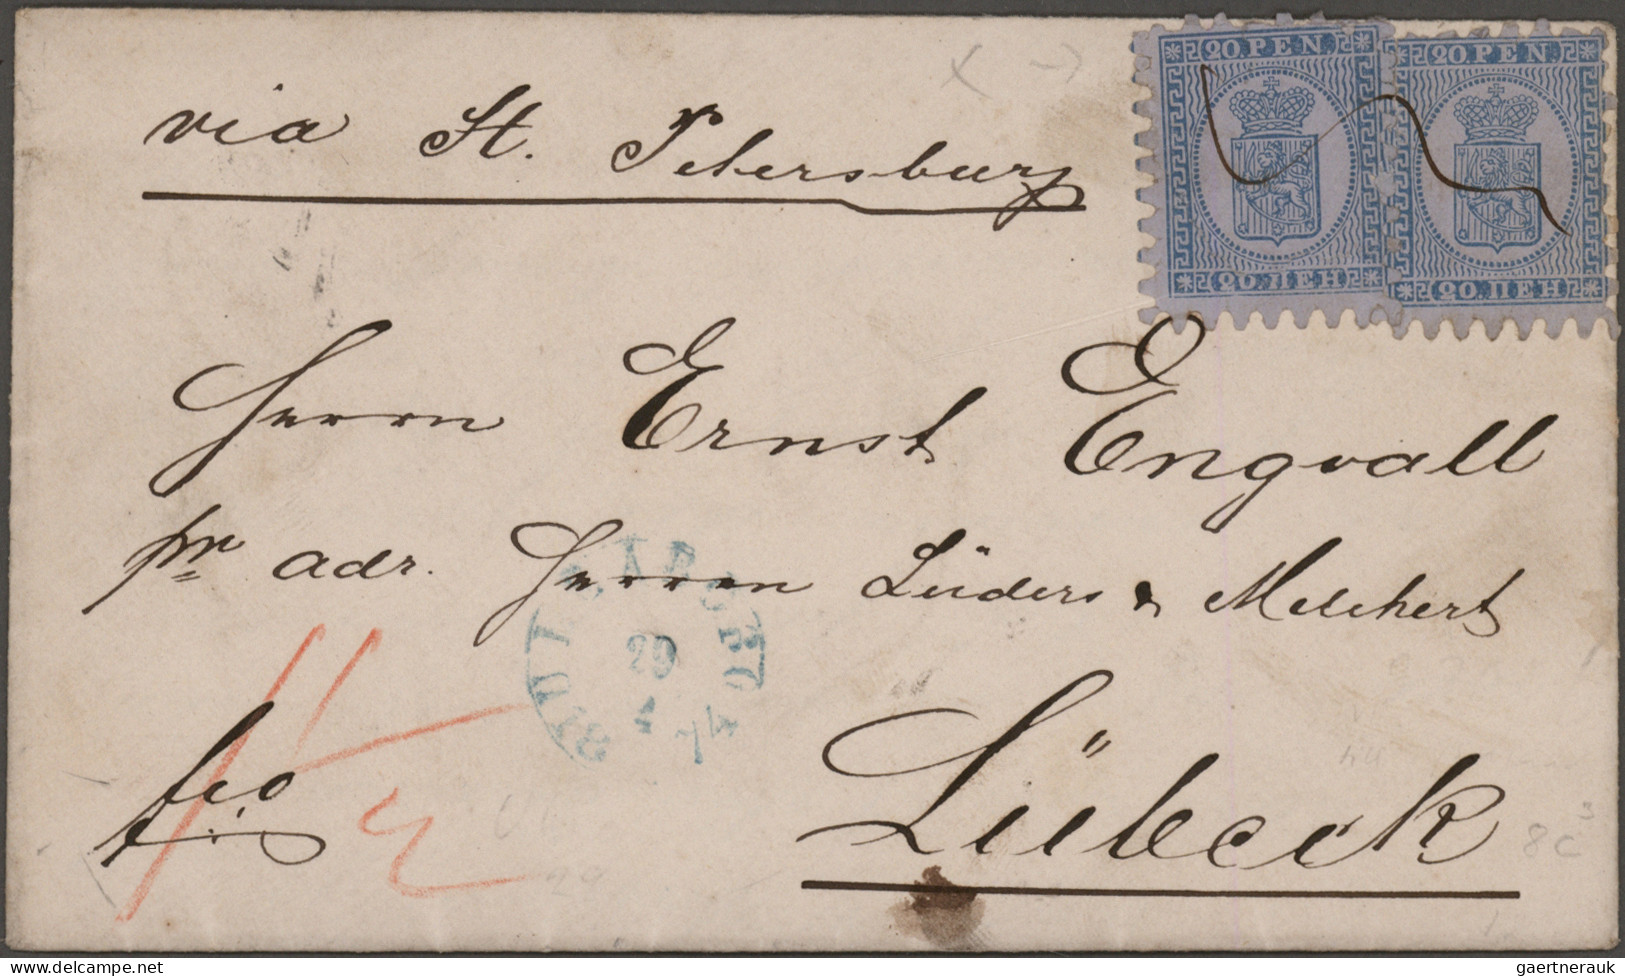 via St. Petersburg
20.PEN.
20.ПЕН
20.PEN.
20.ПЕН
Herrn Ernst Engvall
pr adr. Herrn Lüders & Melchert
29
Lübeck
fco
8c³
delcampe.net
gaertnerauk